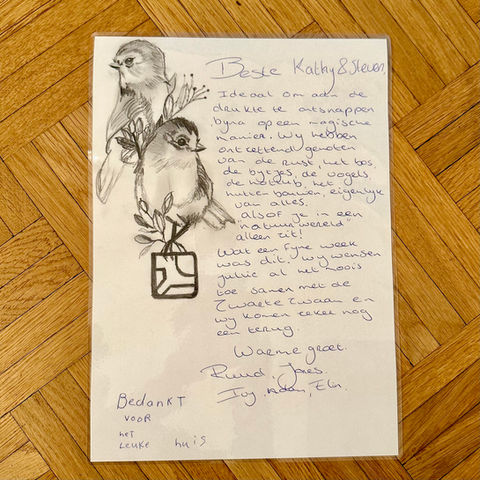 Beste Kathy & Steven,
Ideaal om aan de
drukte te ontsnappen
byna op een magische
manier. Wy hebben
ontzettend genoten
van de rust, het bos
de bytjes, de vogels
de hottub, het
hutten bouwen, eigenlyk
van alles.
alsof je in een
"natuurwereld"
alleen zit!
Wat een fyne week
was dit. Wy wensen
jullie al het moois
toe samen met de
Zwarte Zwaan en
wy komen zeker nog
een terug.
Warme groet.
Ruud, James.
Ivy, Adam, Elin.
Bedankt
voor
het
leuke huis